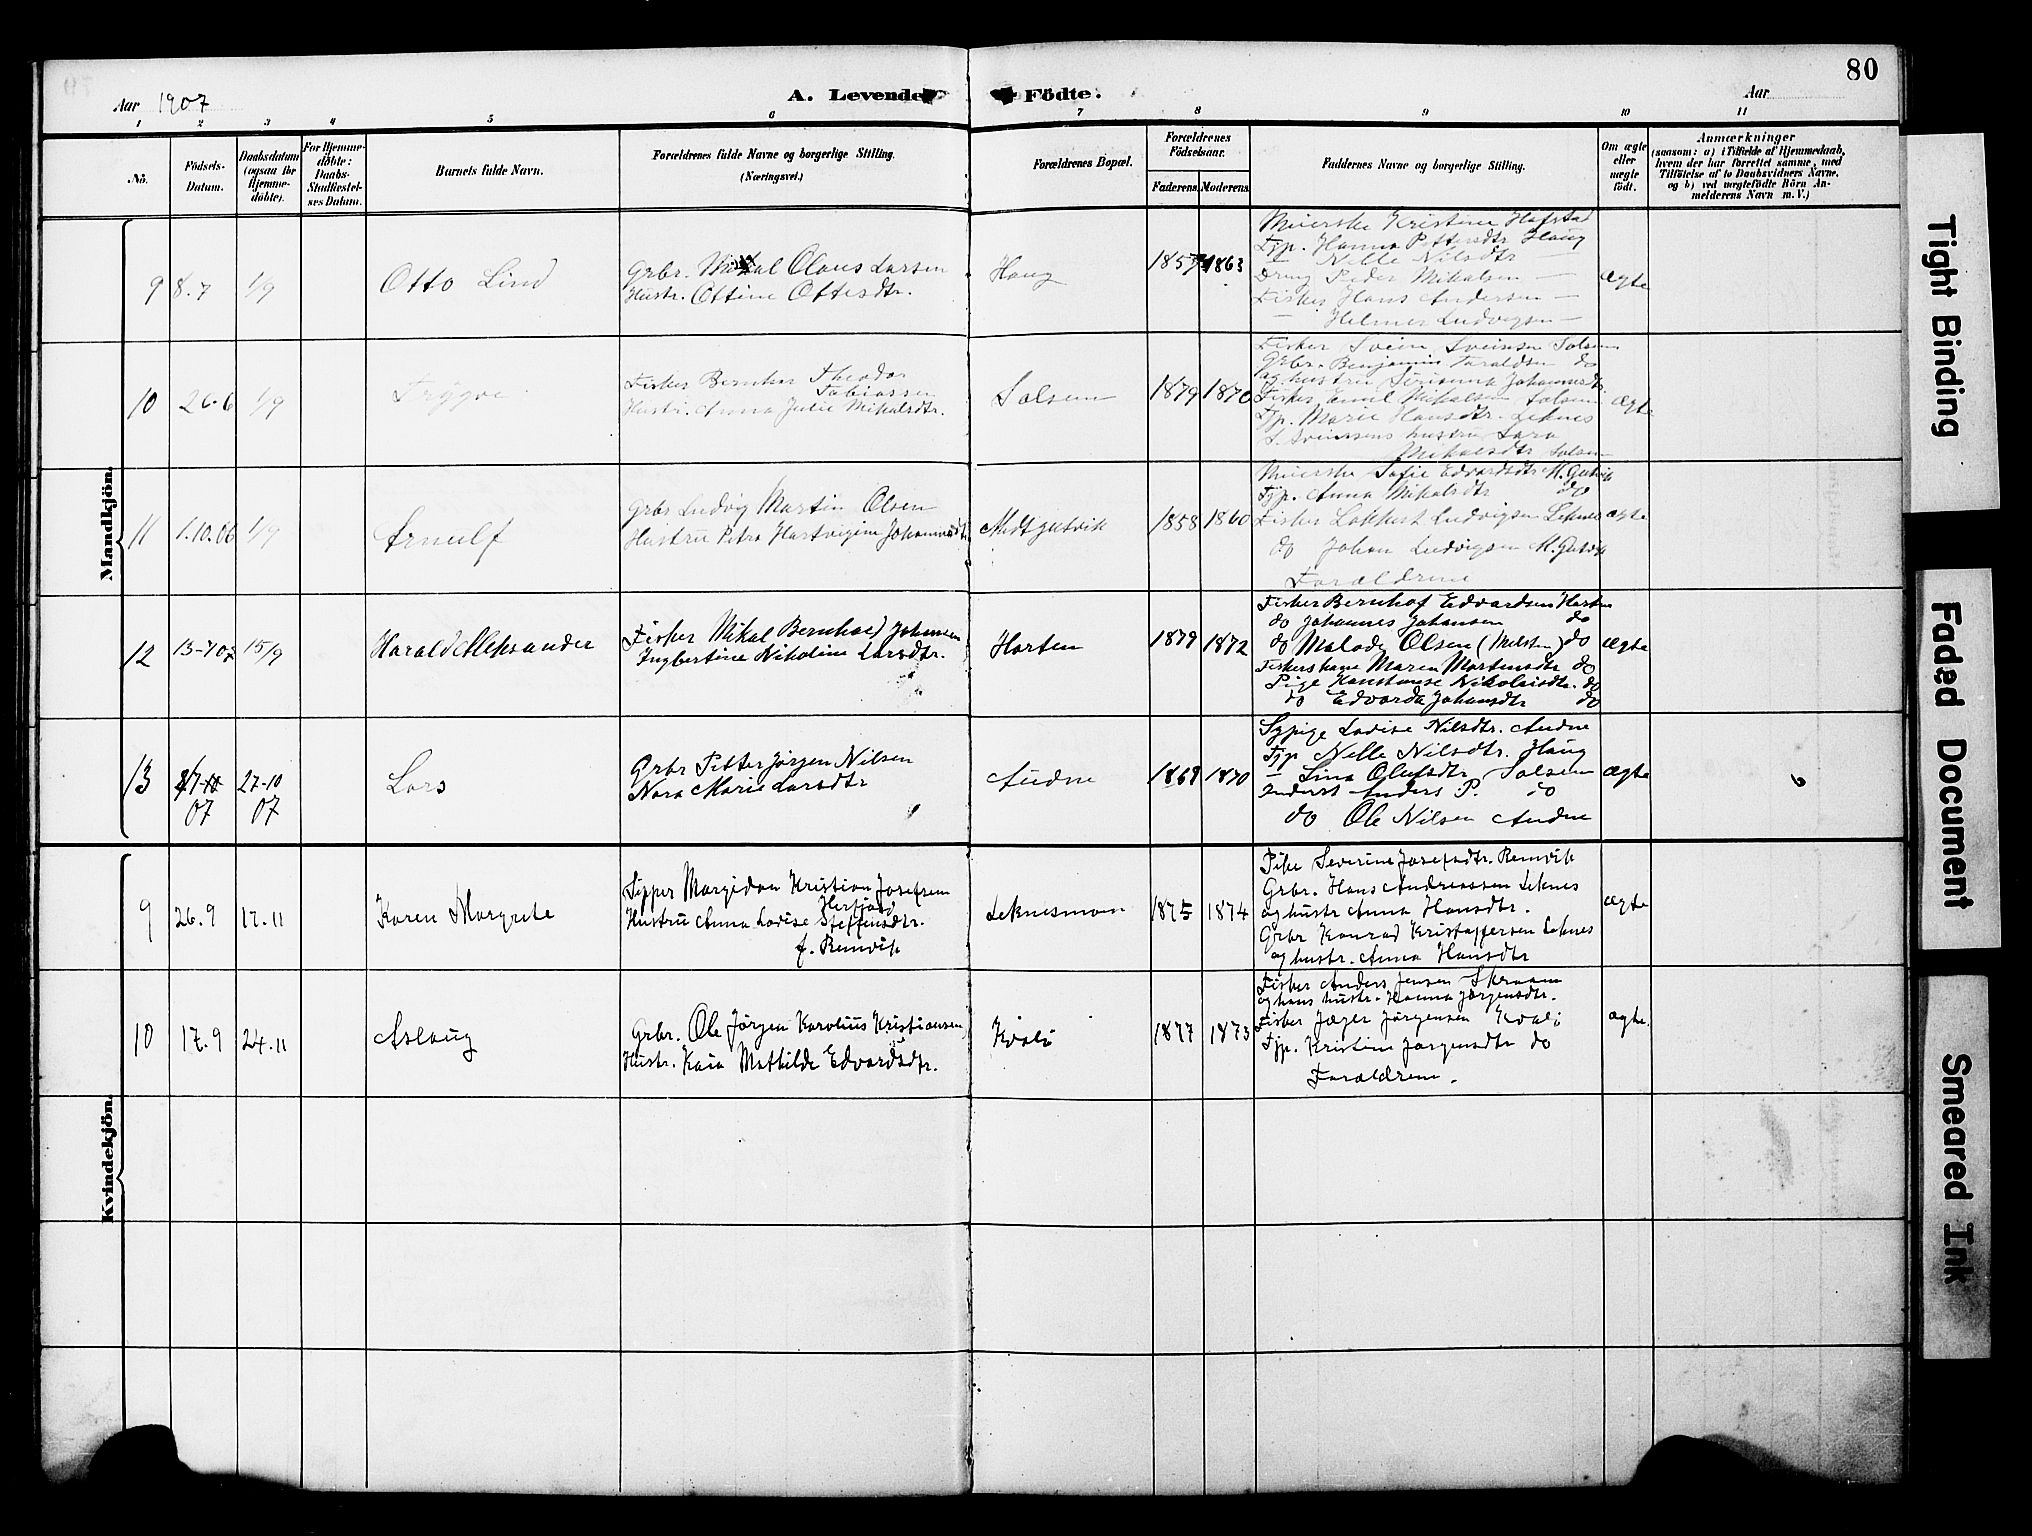 80
Aar 1907
A. Levende Födte.
Aar
1 2 3 4 5 6 7 8 9 10 11
No.
Födsels-Datum.
Daabsdatum (ogsaa for Hjemme-döbte).
For Hjemme-döbte: Daabs-Stadfæstel-ses Datum.
Barnets fulde Navn.
Forældrenes fulde Navne og borgerlige Stilling.
(Næringsvei.)
Forældrenes Bopæl.
Forældrenes Födselsaar.
Faderens. Moderens.
Faddernes Navne og borgerlige Stilling.
Om ægte eller uægte födt.
Anmærkninger
(saasom: a) i Tilfælde af Hjemmedaab,
hvem der har forrettet samme, med
Tilföielse af to Daabsvidners Navne,
og b) ved uægtefödte Börn An-
melderens Navn m.V.)
Mandkjön.
9 8.7 1/9 Otto Lind
Grbr. Mikal Olaus Larsen
Hustr. Ottine Ottesdtr.
Haug 1857 1863
Meierske Kristine Hofstad
Tjp. Hanna Pettersdtr Haug
— Nelle Nilsdtr —
Dreng Peder Mikalsen —
Fisker Hans Andersen —
— Helmer Ludvigsen —
ægte
10 26.6 1/9 Trygve
Fisker Bernhar Theodor
Tobiassen
Hustr. Anna Julie Mikalsdtr.
Solsem 1879 1870
Fisker Svein Sveinsen Solsem
Grbr. Benjamin Taraldsen do
og hustru Johannesdtr
Fisker Emil Mikalsen Solsem
Tjp. Marie Hansdtr. Leknes
S. Sveinsens hustru Sara
Mikalsdtr Solsem
ægte
11 1.10.06 1/9 Arnulf
Grbr Ludvig Martin Olsen
Hustru Petra Hartvigine Johannesdtr
Midtgutvik 1858 1860
Meierske Sofie Edvardsdtr M. Gutvik
Tjp. Anna Mikalsdtr do
Fisker Ludvigsen Leknes
do Johan Ludvigsen M. Gutvik
Forældrene
ægte
12 13-7 07 15/9 Harald Aleksander
Fisker Mikal Bernhard Johansen
Ingbertine Nikoline Larsdtr.
Horten 1879 1872
Fisker Bernhof Edvardsen Horten
do Johannes Johansen do
do Olsen do
Maren Martinsdtr do
Pige Nikolaisdtr. do
do Edvarda Johansdtr do
ægte
13 07 27-10 07 Lars
Grbr Petter Jörgen Nilsen
Nora Marie Larsdtr
Audne 1869 1870
Sypige Lovise Nilsdtr. Audne
Tjp Nelle Nilsdtr. Haug
— Lina Olufsdtr Solsem
Inderst Anders P. do
do Ole Nilsen Audne
ægte
Kvindekjön.
9 26.9 17.11 Karen Margrete
Sipper Margidon Kristian Josefsen
Herfjord
Hustru Anna Lovise Steffensdtr.
f. Remvik
Leknesmoen 1875 1874
Pike Severine Josefsdtr. Remvik
Grbr. Hans Andreassen Leknes
og hustr Anna Hansdtr.
Grbr Konrad Kristoffersen Leknes
og hustr. Anna Hansdtr
ægte
10 17.9 24.11 Aslaug
Grbr. Ole Jörgen Karolius Kristiansen
Hustr. Kaia Mathilde Edvardsdtr.
Kvalö 1877 1873
Fisker Anders Jensen Skraaen
og hans hustr. Hanna Jørgensdtr.
Fisker Jæger Jörgensen Kvalö
Tjp. Kristine Jørgensdtr do
Forældrene.
ægte.
Tight Binding
Faded Document
Smeared Ink